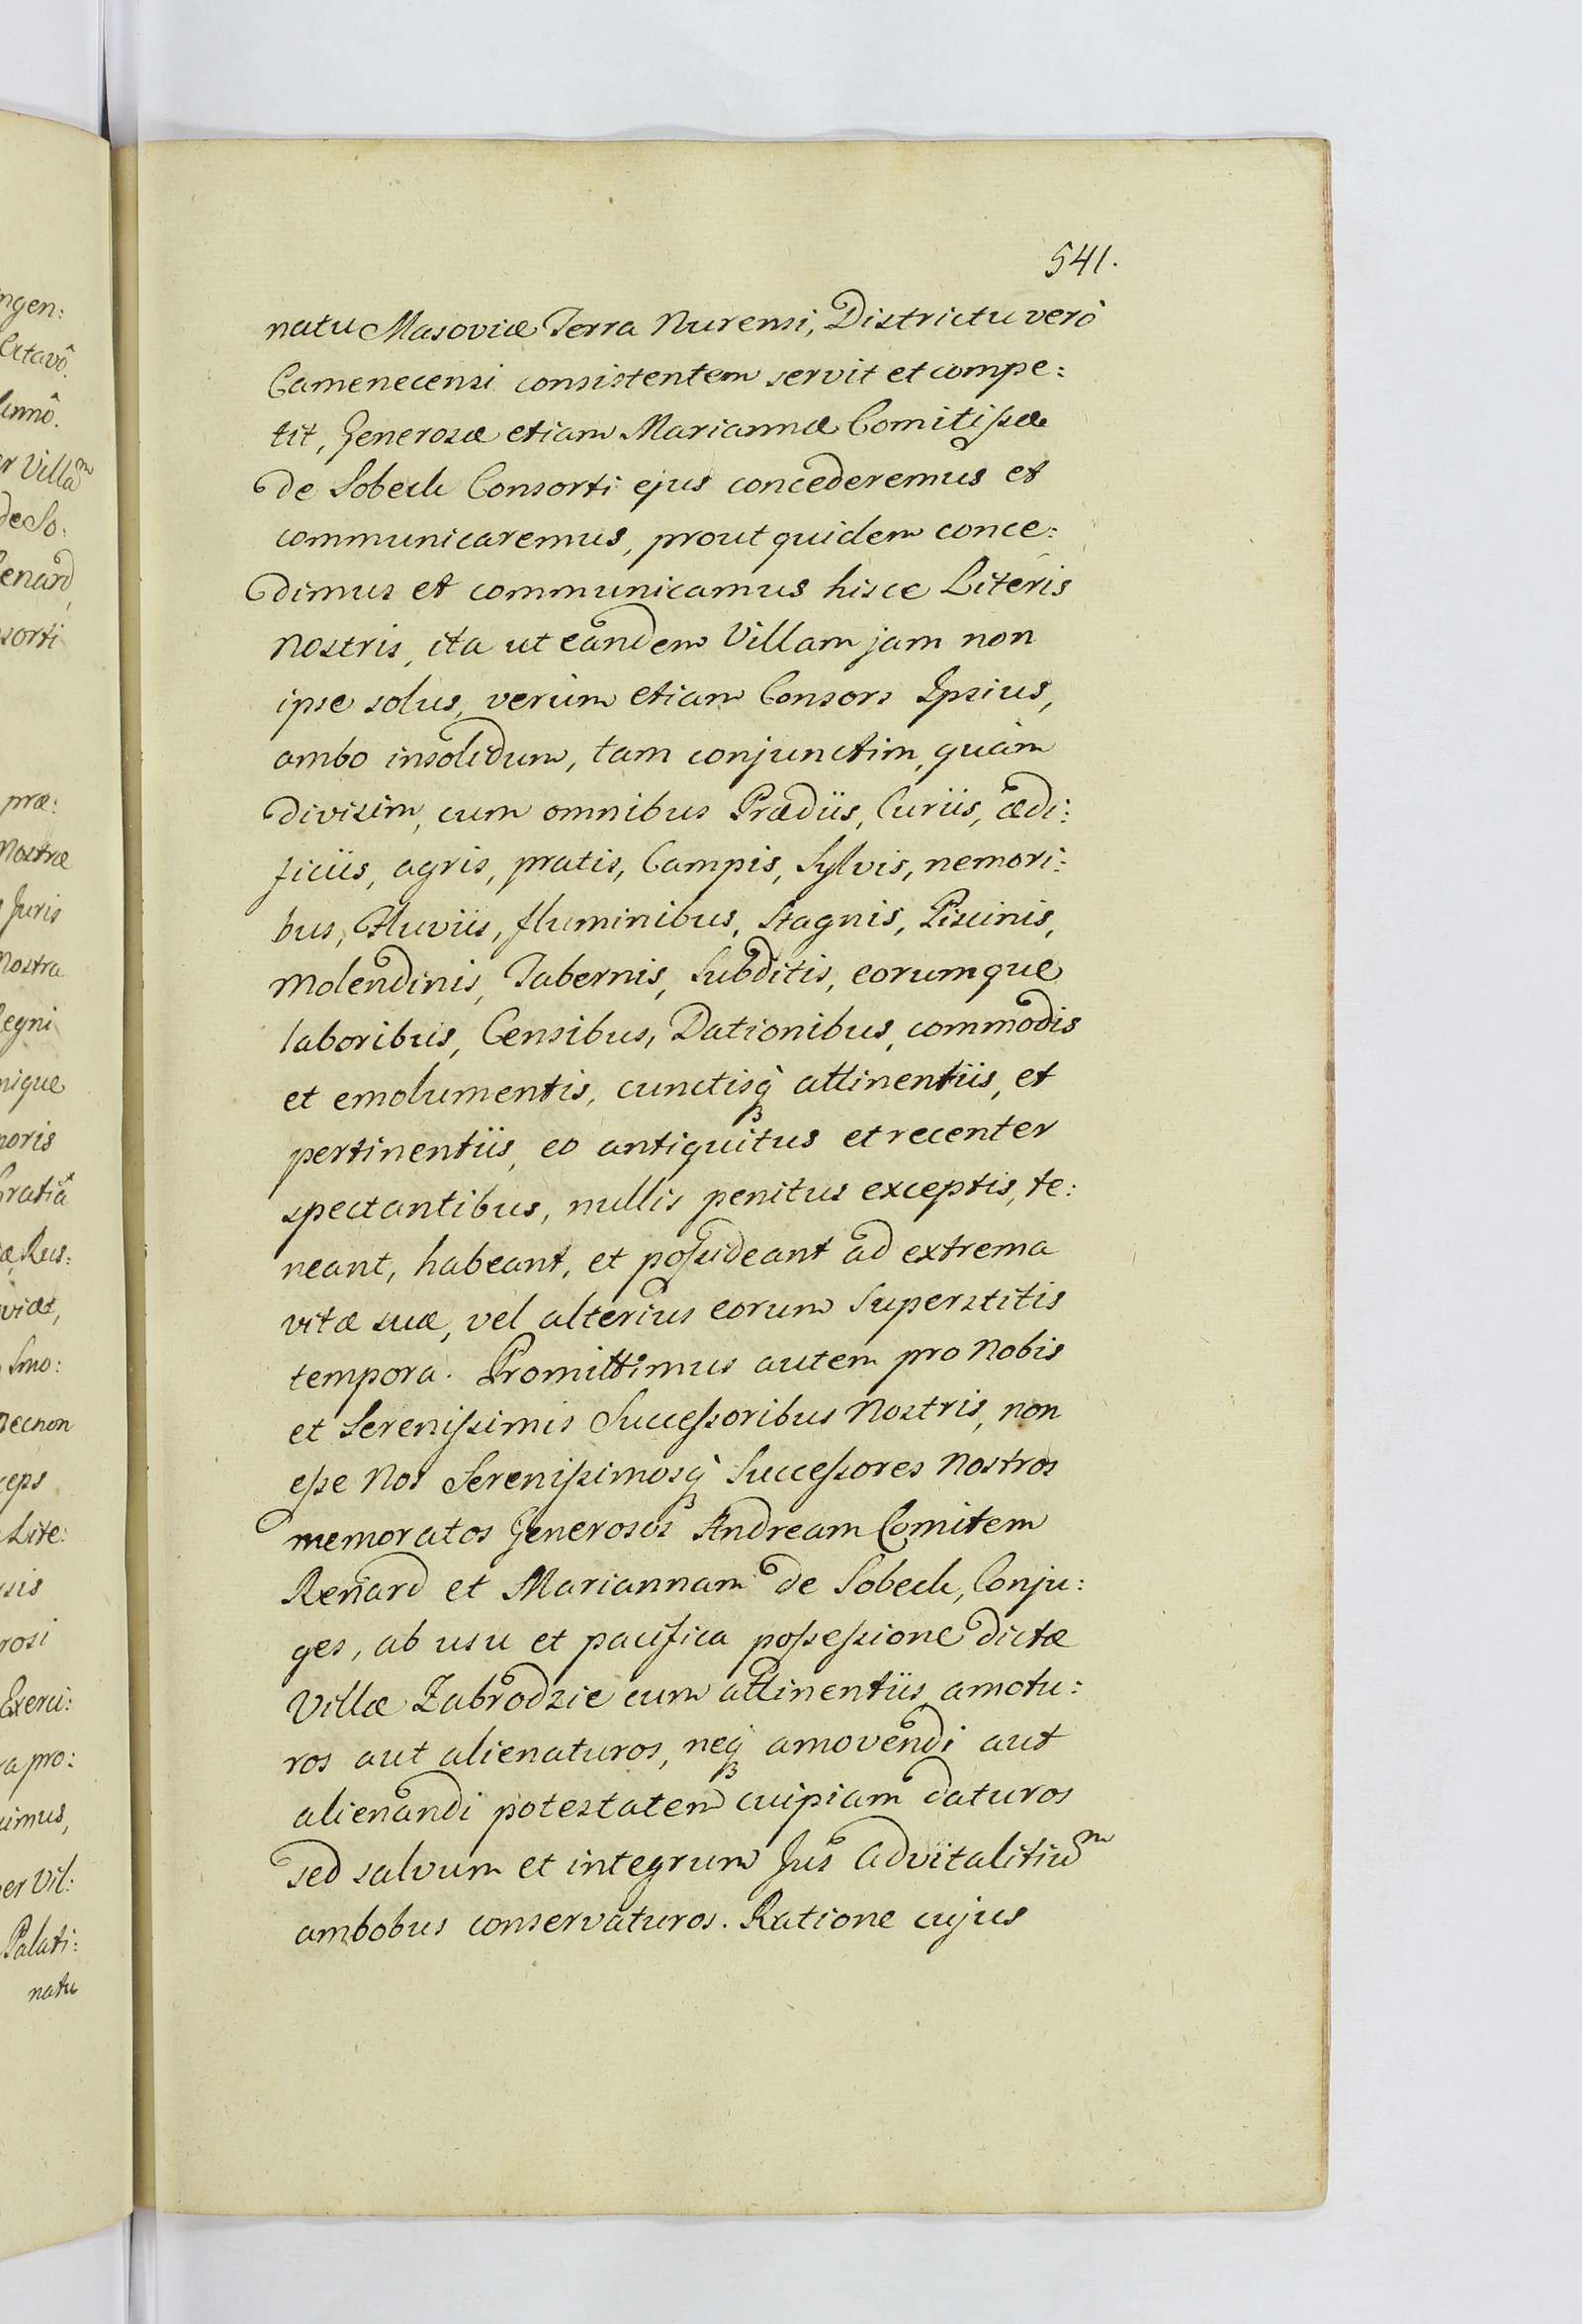 541.
natu Masoviæ Terra Nurensi, Districtu verò
Camenecensi consistentem servit et compe:
tit, Generosæ etiam Mariannæ Comitissæ
de Sobeck Consorti ejus concederemus et
communicaremus, prout quidem conce:
dimus et communicamus hisce Literis
Nostris, ita ut eandem Villam jam non
ipse solus, verùm etiam Consors Ipsius,
ambo insolidum, tam conjunctim, quàm
divisim, cum omnibus Prædiis, Curiis, ædi:
ficiis, agris, pratis, Campis, Sylvis, nemori:
bus, Fluviis, fluminibus, Stagnis, Piscinis,
Molendinis, Tabernis, Subditis, eorumque
laboribus, Censibus, Dationibus, commodis
et emolumentis, cunctisq₃ attinentiis, et
pertinentiis, eo antiquitus et recenter
spectantibus, nullis penitus exceptis, te:
neant, habeant, et possideant ad extrema
vitæ suæ, vel alterius eorum Superstitis
tempora. Promittimus autem pro Nobis
et Serenissimis Successoribus Nostris, non
esse Nos Serenissimosq₃ Successores Nostros
memoratos Generosos Andream Comitem
Renard et Mariannam de Sobeck, Conju:
ges, ab usu et pacifica possessione dictæ
Villæ Zabrodzie cum attinentiis amotu:
ros aut alienaturos, neq₃ amovendi aut
alienandi potestatem cuipiam daturos
sed salvum et integrum Jus Advitalitiuᵐ
ambobus conservaturos. Ratione cujus
ngen:
Octavô.
Annô.
er Villaᵐ
de So:
Renard,
sorti
præ:
Nostræ
Juris
Nostra
Regni
nique
noris
Gratiâ
æ, Rus:
viæ,
Smo:
necnon
ceps
Lite:
sis
rosi
Exerci:
ra pro:
uimus,
er Vil:
Palati:
natu